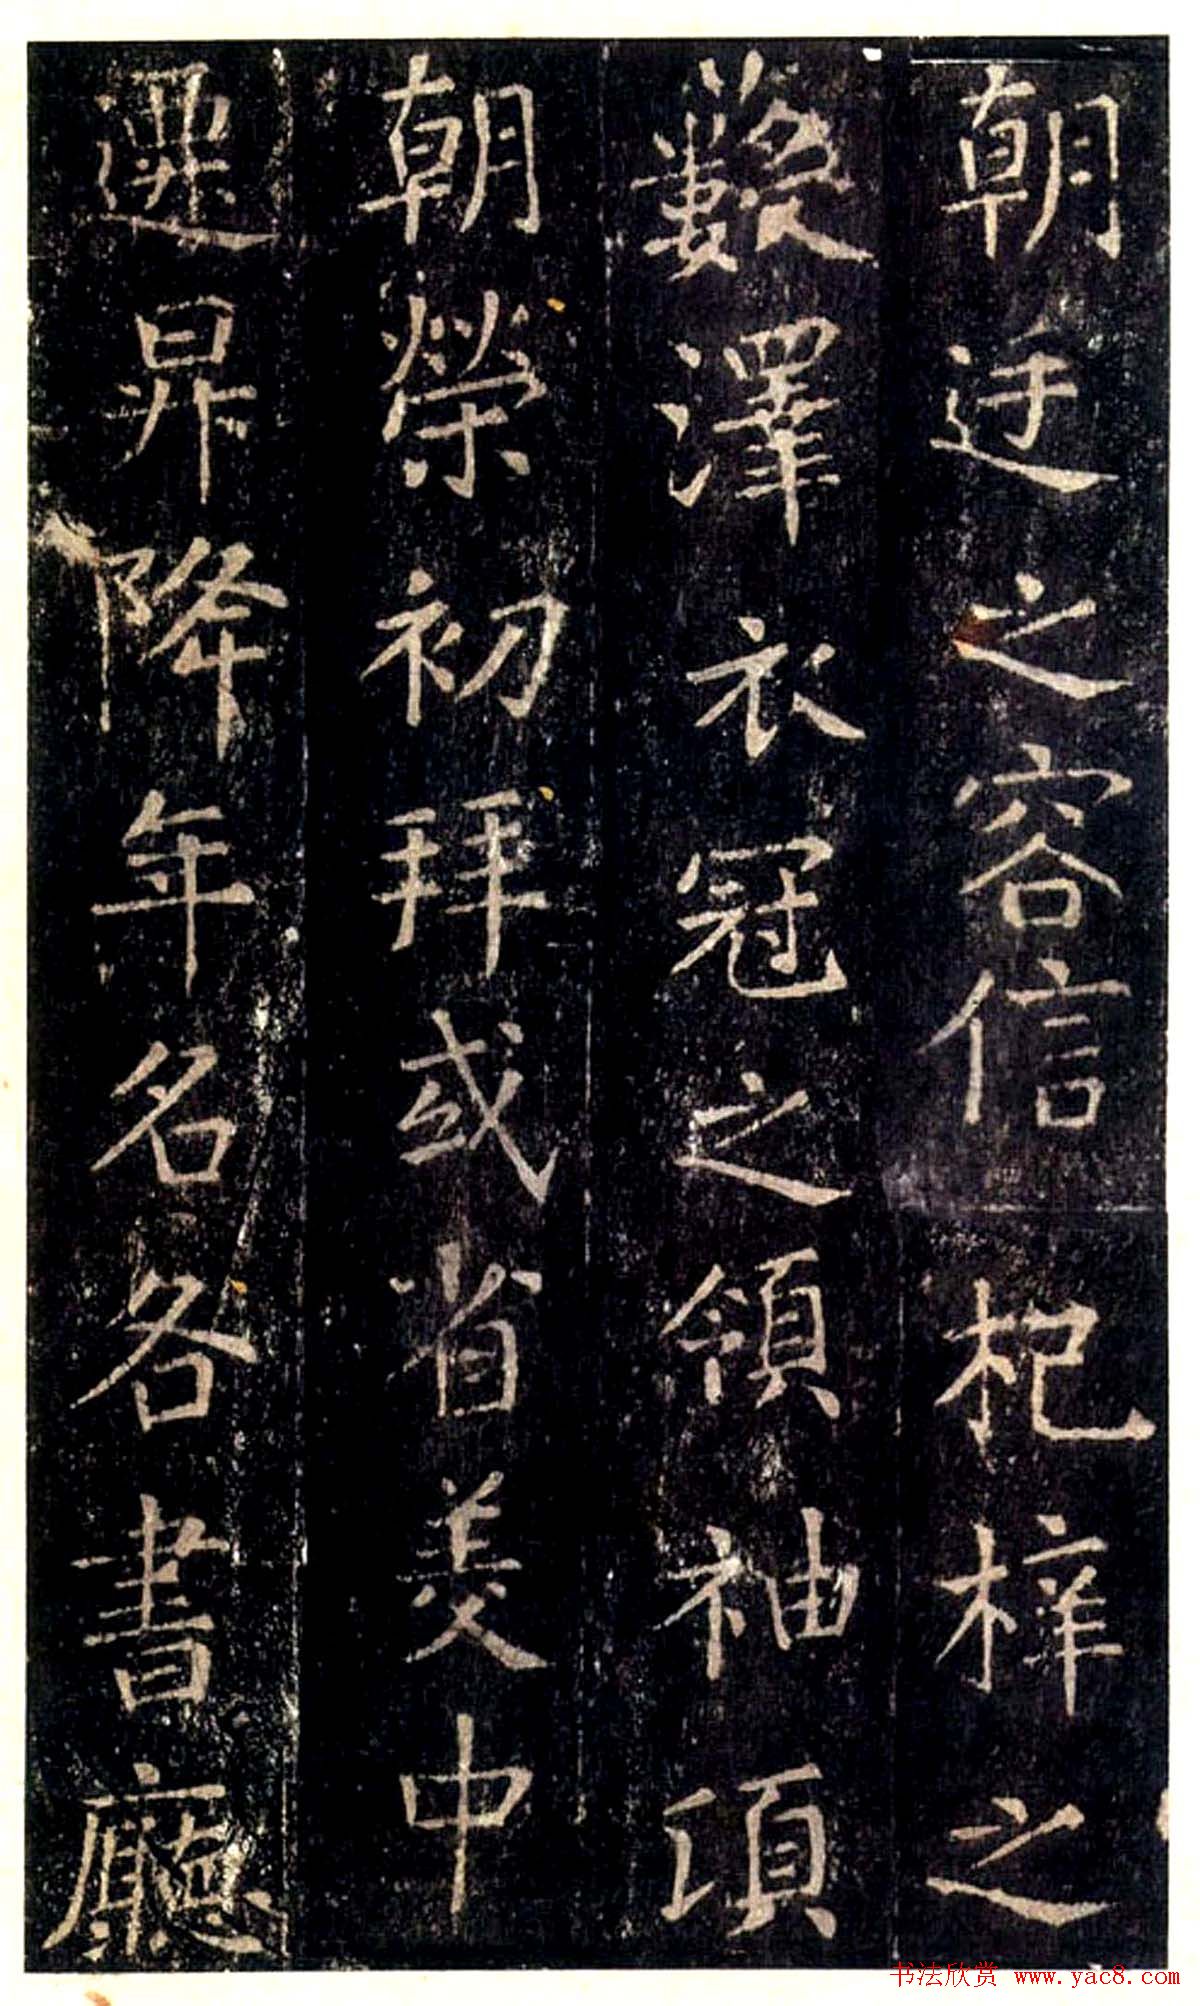 朝廷之容信杞梓之
藪澤衣冠之領袖頃
朝榮初拜或省美中
遷昇降年名各書廳
书法欣赏 www.yac8.com